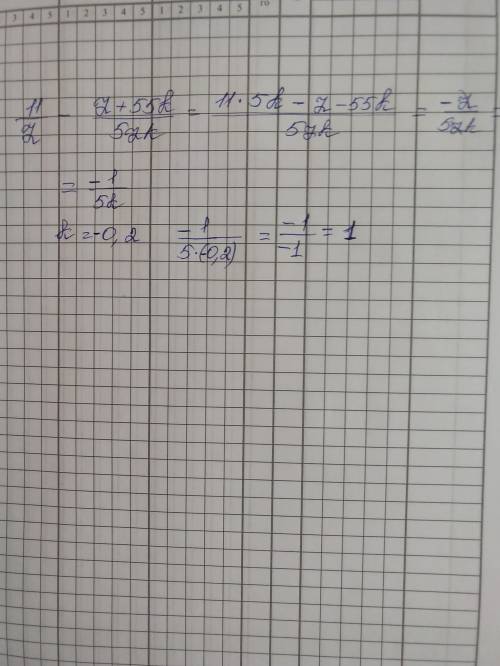 3 4 5 1 2 3 4 5 1 2 3 4 5 го
11/z - z+55k/5zk = 11·5k-z-55k/5zk = -z/5zk =
= -1/5k
k=-0,2 -1/5·(-0,2) = -1/-1 = 1